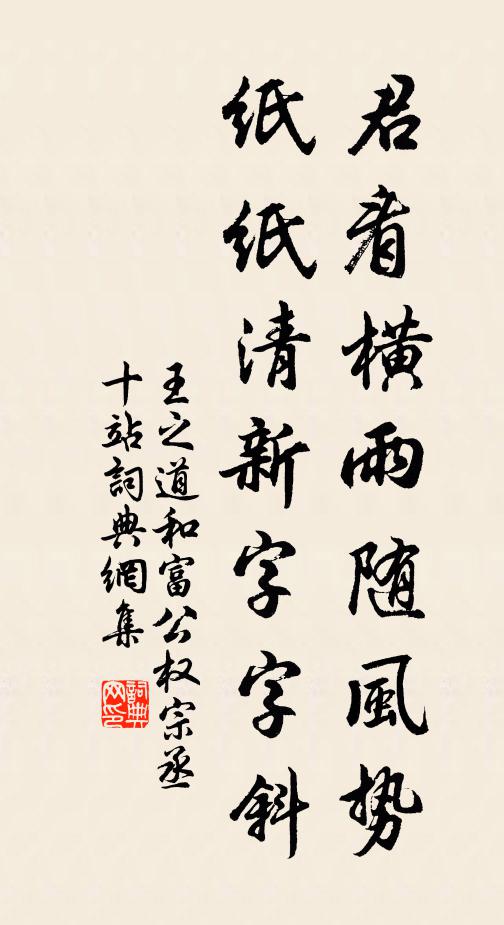 君看橫雨随風勢
紙紙清新字字斜
王之道和富公权宗丞
十站詞典網集
詞典网印